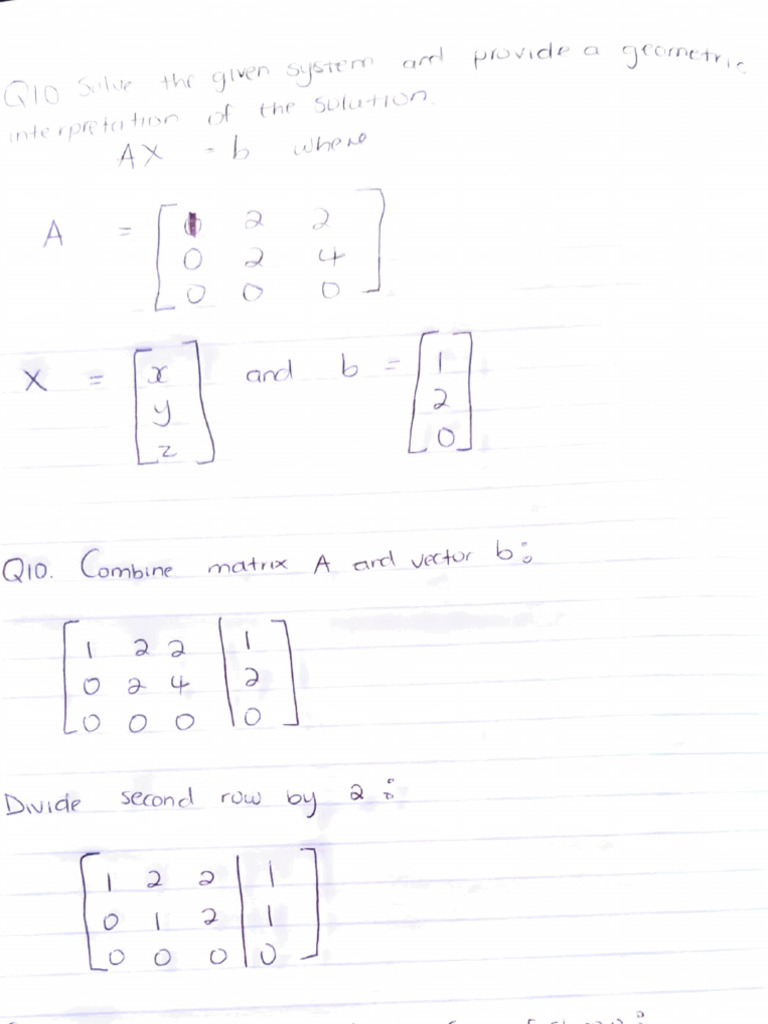 Q10 Solve the given system and provide a geometric
interpretation of the solution.
AX = b where
A = [ 1 2 2
0 2 4
0 0 0 ]
X = [ x
y
z ] and b = [ 1
2
0 ]
Q10. Combine matrix A and vector b:
[ 1 2 2 | 1
0 2 4 | 2
0 0 0 | 0 ]
Divide second row by 2:
[ 1 2 2 | 1
0 1 2 | 1
0 0 0 | 0 ]